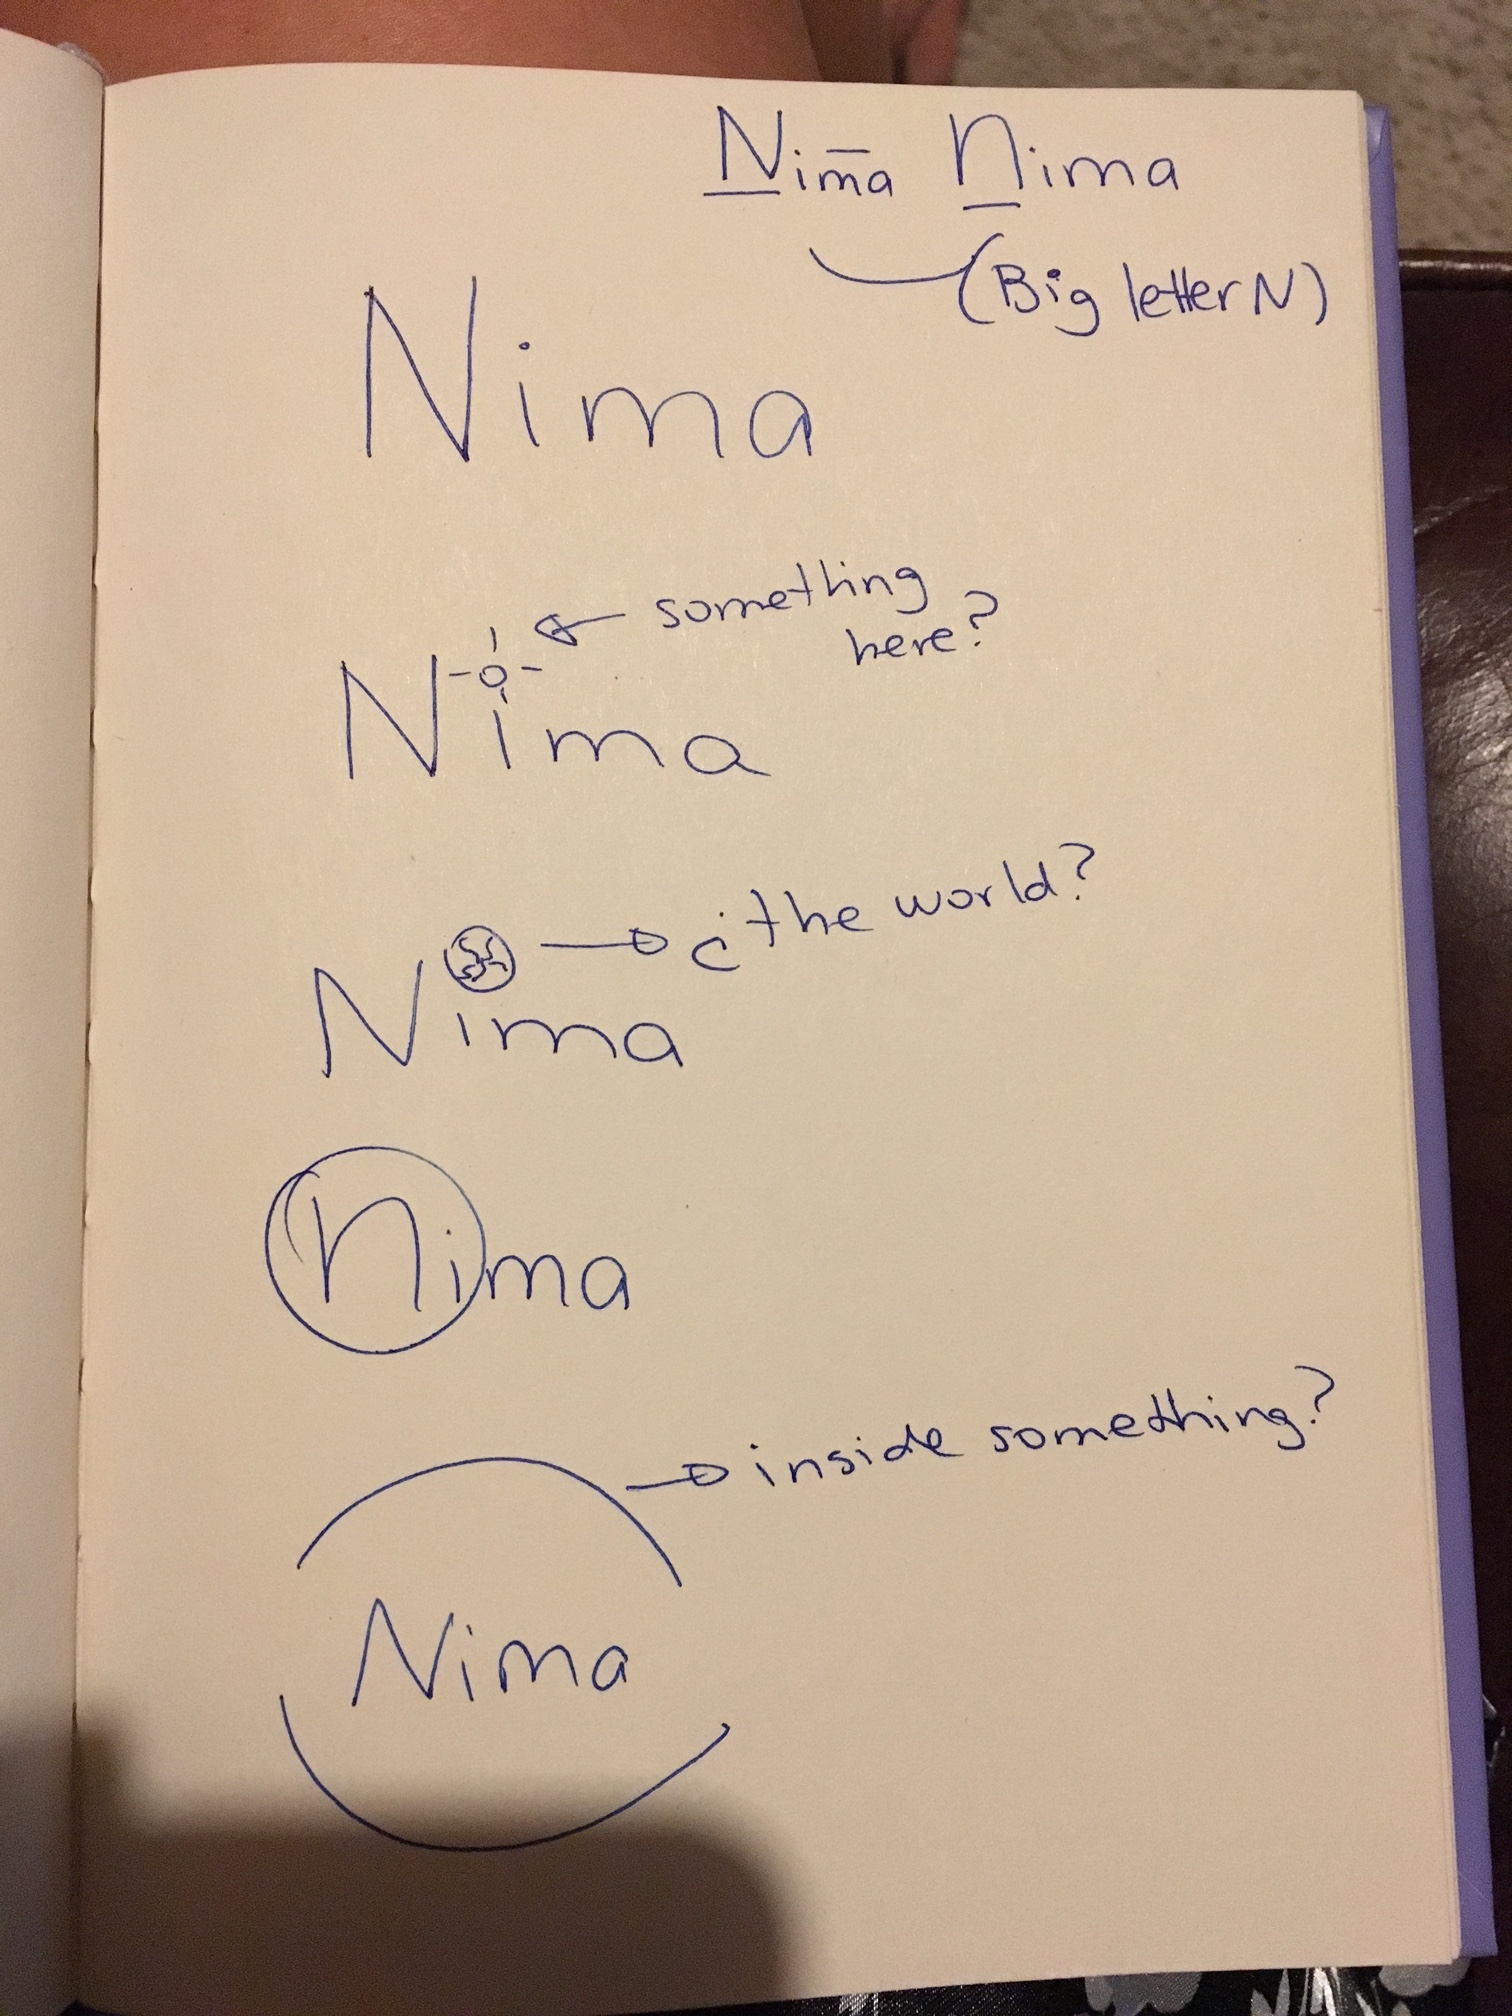 Nima nima
(Big letter N)
Nima
something
here?
Nima
¿the world?
Nima
nima
inside something?
Nima